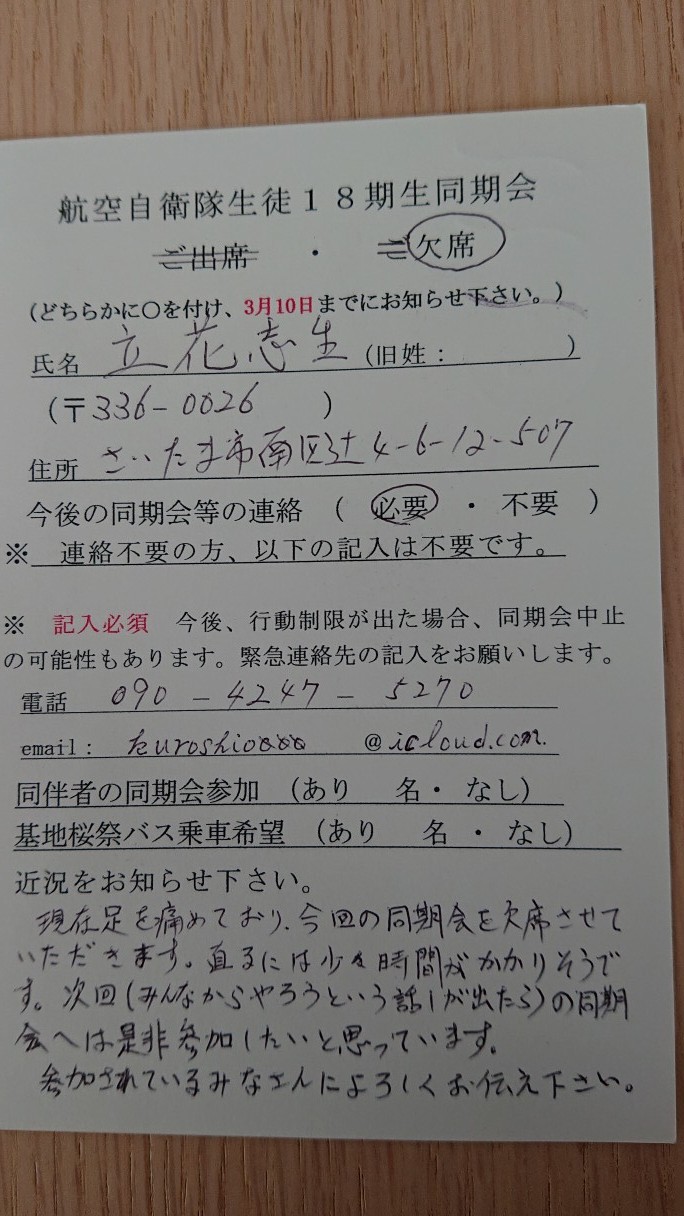 航空自衛隊生徒18期生同期会
ご出席 ・ ご欠席
(どちらかに〇を付け、3月10日までにお知らせ下さい。)
氏名 立花志生 (旧姓: )
(〒336-0026 )
住所 さいたま市南区辻4-6-12-507
今後の同期会等の連絡 ( 必要 ・ 不要 )
※ 連絡不要の方、以下の記入は不要です。
※ 記入必須 今後、行動制限が出た場合、同期会中止
の可能性もあります。緊急連絡先の記入をお願いします。
電話 090-4247-5270
email: @icloud.com.
同伴者の同期会参加 (あり 名・ なし)
基地桜祭バス乗車希望 (あり 名 ・ なし)
近況をお知らせ下さい。
現在足を痛めており、今回の同期会を欠席させて
いただきます。直るには少々時間がかかりそうで
す。次回(みんなからやろうという話しが出たら)の同期
会へは是非参加したいと思っています。
参加されているみなさんによろしくお伝え下さい。